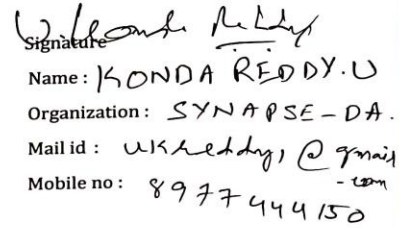 U Konda Reddy
Signature
Name : KONDA REDDY.U
Organization : SYNAPSE-DA.
Mail id : ukreddy1@gmail
-com
Mobile no : 8977444150